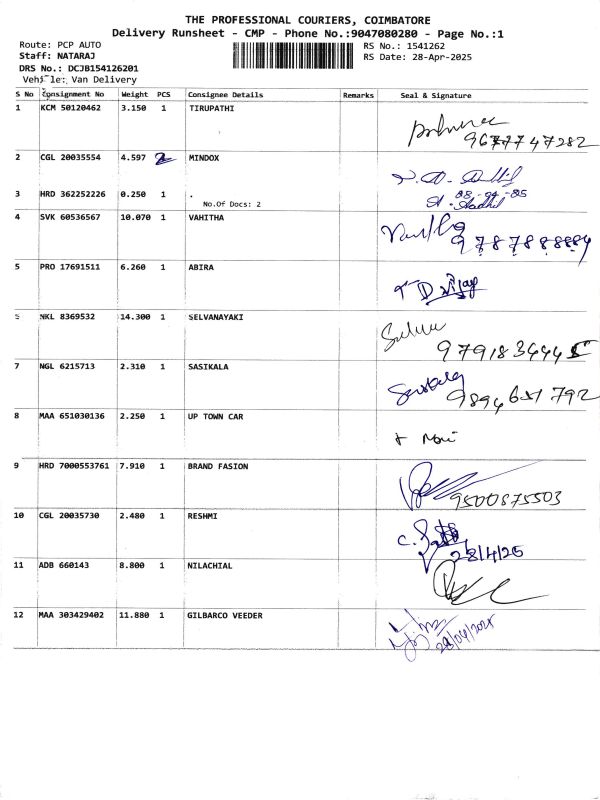 THE PROFESSIONAL COURIERS, COIMBATORE
Delivery Runsheet - CMP - Phone No.:9047080280 - Page No.:1
Route: PCP AUTO
RS No.: 1541262
Staff: NATARAJ
RS Date: 28-Apr-2025
DRS No.: DCJB154126201
Vehicle: Van Delivery
S No Consignment No Weight PCS Consignee Details Remarks Seal & Signature
1 KCM 50120462 3.150 1 TIRUPATHI
9677747282
2 CGL 20035554 4.597 2 MINDOX
3 HRD 362252226 0.250 1 .
No.Of Docs: 2
4 SVK 60536567 10.070 1 VAHITHA
5 PRO 17691511 6.260 1 ABIRA
D Vijay
NKL 8369532 14.300 1 SELVANAYAKI
7 NGL 6215713 2.310 1 SASIKALA
Sasikala
9894651792
8 MAA 651030136 2.250 1 UP TOWN CAR
9 HRD 7000553761 7.910 1 BRAND FASION
9500875503
10 CGL 20035730 2.480 1 RESHMI
28/4/25
11 ADB 660143 8.800 1 NILACHIAL
12 MAA 303429402 11.880 1 GILBARCO VEEDER
28/04/2025